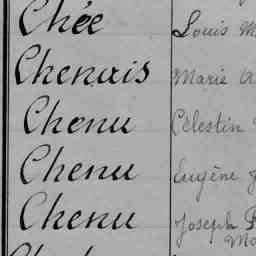 Chée Louis
Chenais Marie
Chenu Célestin
Chenu Eugène
Chenu Joseph